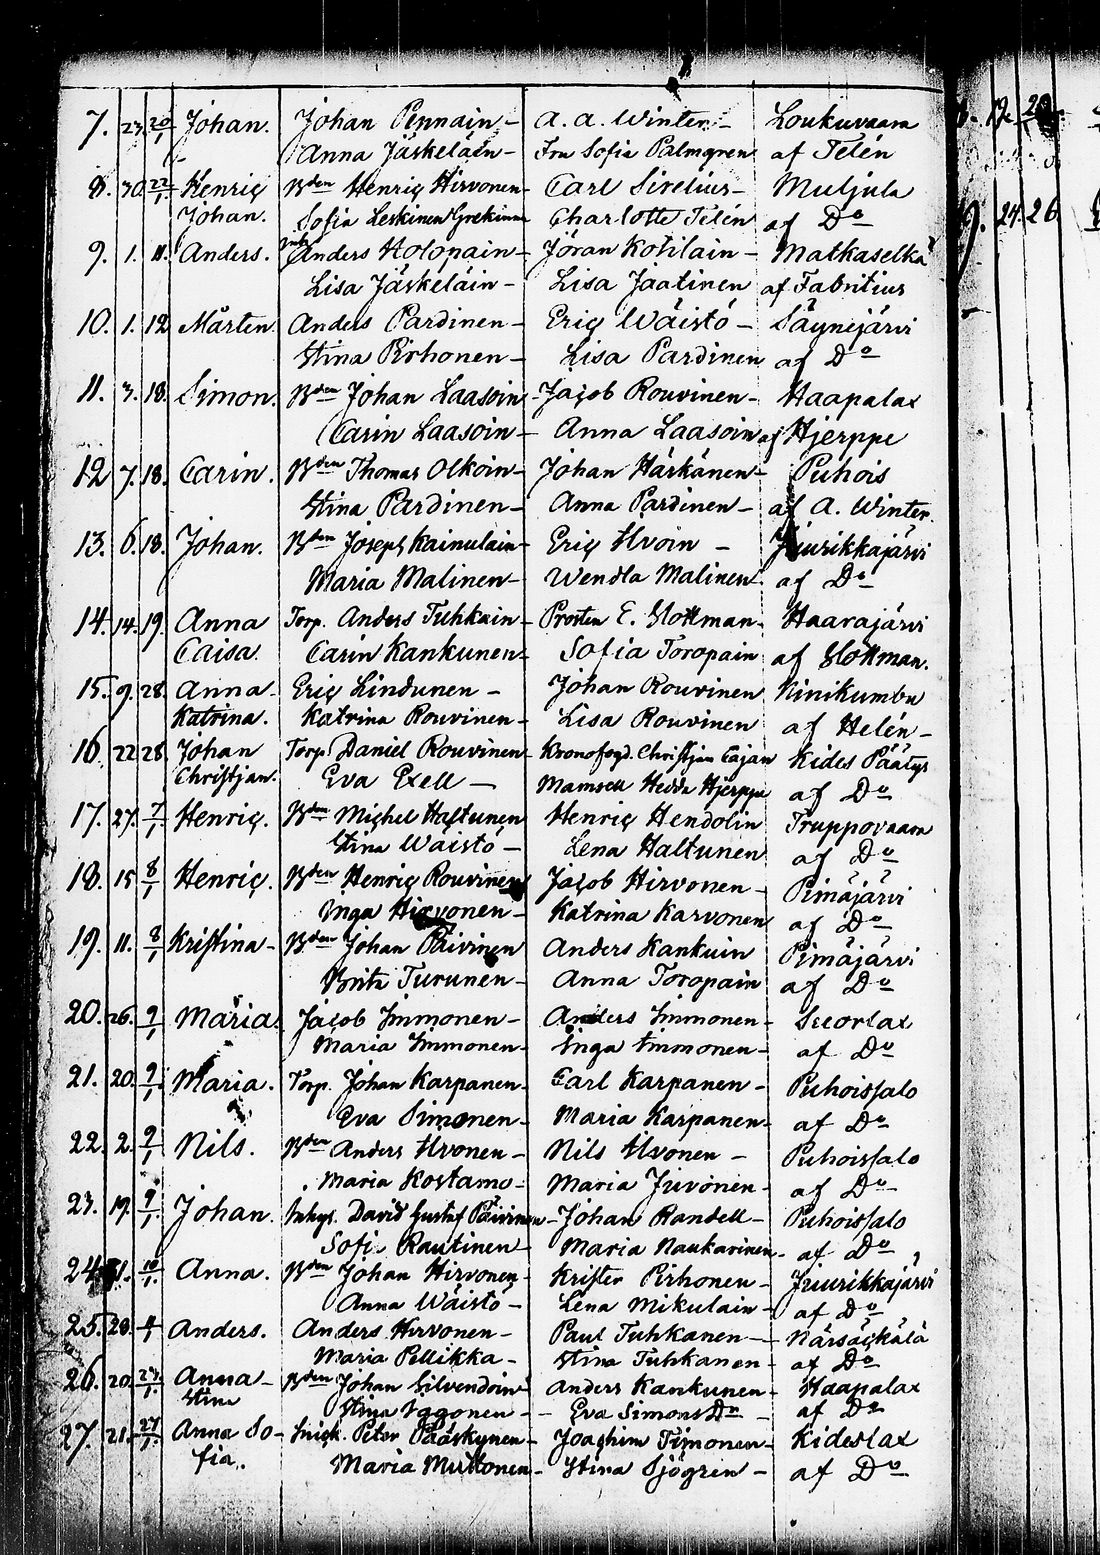 7. 23. 20/ Johan. Johan Pennain- A. A. Winter- Loukuvaara
Anna Jäskeläin- Fru Sofia Palmgren af Telén
8. 30. 22/1. Henric Bden Henric Hirvonen- Carl Sirelius- Muljula
Johan. Sofia Leskinen Charlotte Telén af Do
9. 1. 11. Anders. Anders Holopain- Jöran Kohlain- Matkaselkä
Lisa Jäskeläin- Lisa Jaatinen af Fabritius
10. 1. 12. Mårten Anders Pardinen- Eric Wäistö- Säynejärvi
Stina Pirhonen- Lisa Pardinen af Do
11. 3. 18. Simon. Bden Johan Laasoin- Jacob Rouvinen- Haapalax
Carin Laasoin- Anna Laasoin af Hjerppe
12. 7. 18. Carin. Bden Thomas Olkoin- Johan Härkänen- Puhois
Stina Pardinen- Anna Pardinen- af A. Winter.
13. 6. 18. Johan. Bden Joseph Kainulain- Eric Ilvoin - Juurikkajärvi
Maria Malinen- Wendla Malinen af Do
14. 14. 19. Anna Torp. Anders Tuhkain- Prosten E. Slottman- Haarajärvi
Caisa. Carin Kankunen- Sofia Toropain af Slottman.
15. 9. 28. Anna- Eric Lindunen- Johan Rouvinen Kinikumbu
Katrina. Katrina Rouvinen- Lisa Rouvinen af Helén-
16. 22. 28. Johan Torp. Daniel Rouvinen- Kronofogd. Christjan Cajan Kides Päätys
Christjan. Eva Exell- Mamsell Hedda Hjerppe af Do
17. 27. 7/1. Henric. Bden Michel Haltunen Henric Hendolin Truppovaara
Stina Wäistö- Lena Haltunen af Do
18. 15. 8/1 Henric. Bden Henric Rouvinen Jacob Hirvonen- Pimäjärvi
Inga Hirvonen- Katrina Karvonen af Do
19. 11. 8/1 Kristina- Bden Johan Päivinen Anders Kankuin Pimäjärvi
Brita Turunen- Anna Toropain af Do
20. 26. 9/1 Maria. Jacob Immonen- Anders Immonen- Suorlax
Maria Immonen- Inga Immonen- af Do
21. 20. 9/1. Maria. Torp. Johan Karpanen- Carl Karpanen- Puhoissalo
Eva Simonen- Maria Karpanen- af Do
22. 2. 9/1 Nils. Bden Anders Ilvonen- Nils Ilvonen - Puhoissalo
Maria Kostamo- Maria Juvonen- af Do
23. 19. 9/1. Johan. Inhys. David Gustaf Päivinen- Johan Randell- Puhoissalo
Sofi. Rautinen- Maria Naukarinen- af Do
24. 10/1. Anna. Bden Johan Hirvonen- Krister Pirhonen- Juurikkajärvi
Anna Wäistö- Lena Mikulain- af Do
25. 28. 4 Anders. Anders Hirvonen- Paul Tuhkanen- Närsäckälä
Maria Pellikka- Stina Tuhkanen- af Do
26. 20. 27/1. Anna- Bden Johan Silvendoin Anders Kankunen- Haapalax
Stina Stina Yggonen- Eva Simons Dr - af Do
27. 21. 27/1. Anna So- Snick. Peter Pääskynen- Joachim Timonen- Kideslax
fia. Maria Muttonen- Stina Sjögren- af Do
19. 24. 26